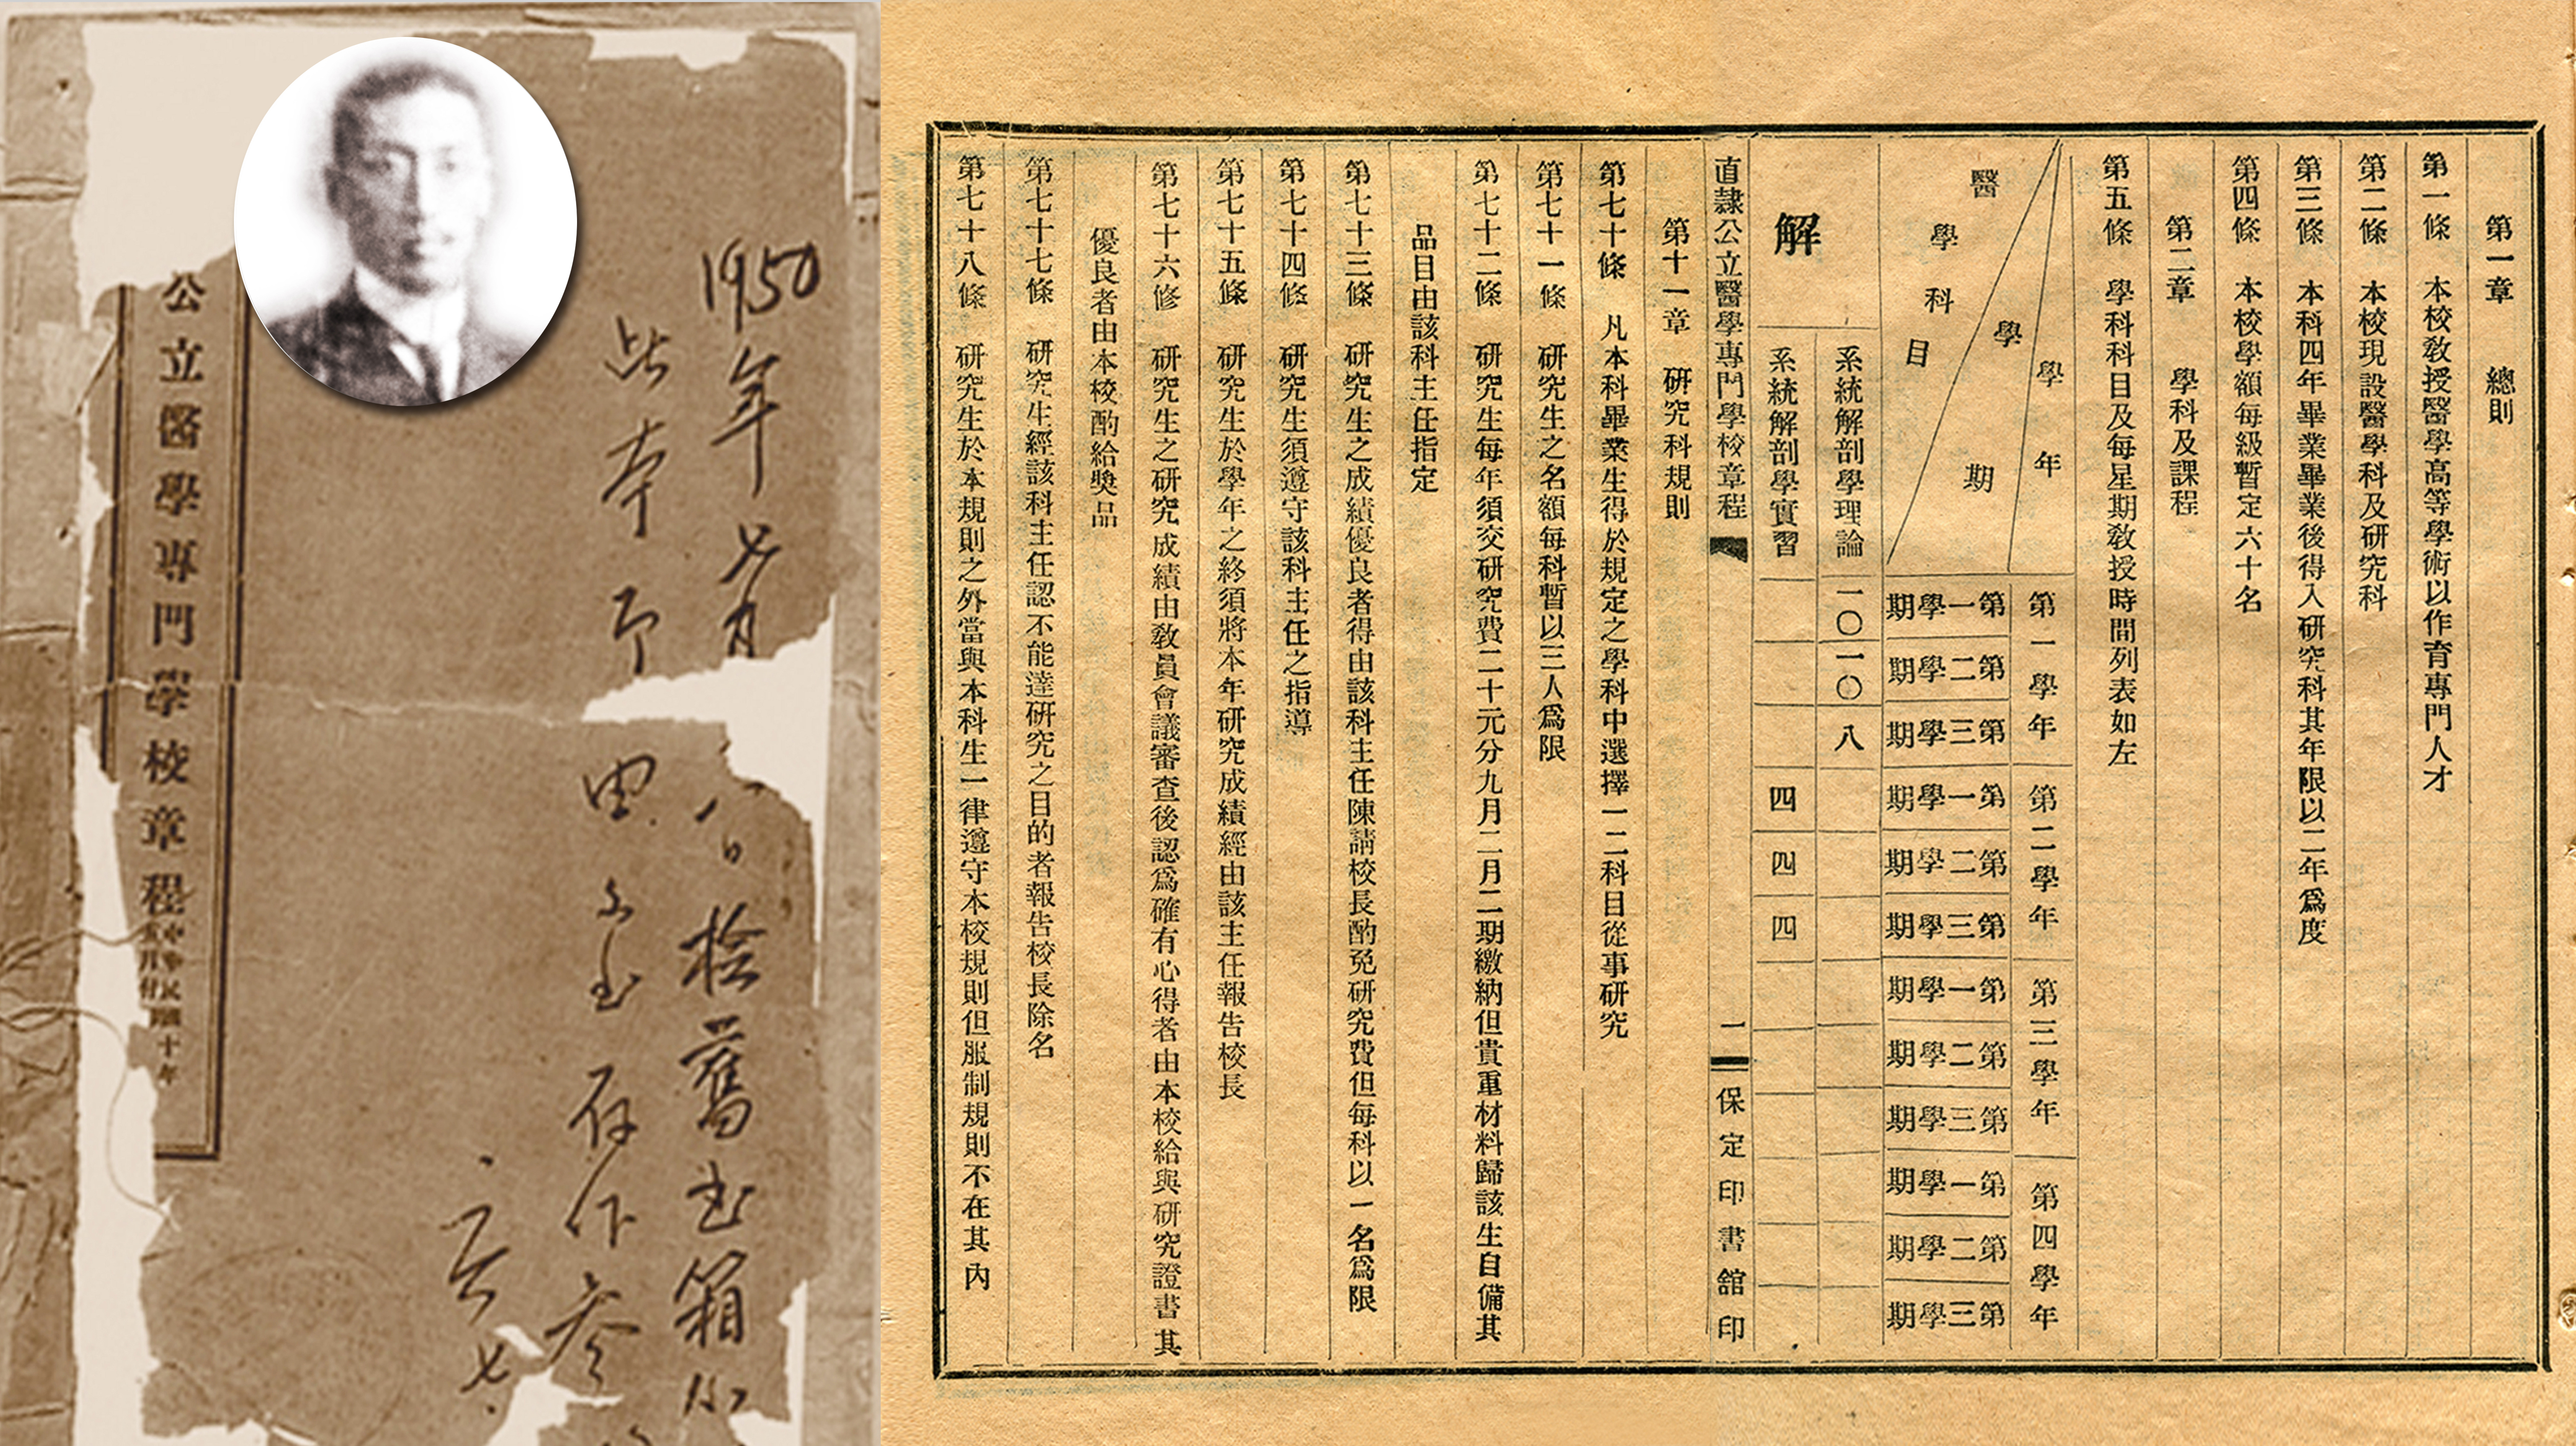 1950年
八日檢舊書箱
此本
存作參
公立醫學專門學校章程
中華民國十年
第一章 總則
第一條 本校教授醫學高等學術以作育專門人才
第二條 本校現設醫學科及研究科
第三條 本科四年畢業畢業後得入研究科其年限以二年爲度
第四條 本校學額每級暫定六十名
第二章 學科及課程
第五條 學科科目及每星期教授時間列表如左
學年
第一學年
第二學年
第三學年
第四學年
學期
第一學期
第二學期
第三學期
第一學期
第二學期
第三學期
第一學期
第二學期
第三學期
第一學期
第二學期
第三學期
醫學科目
解
系統解剖學理論
一〇
一〇
八
系統解剖學實習
四
四
四
直隸公立醫學專門學校章程 一 保定印書舘印
第十一章 研究科規則
第七十條 凡本科畢業生得於規定之學科中選擇一二科目從事研究
第七十一條 研究生之名額每科暫以三人爲限
第七十二條 研究生每年須交研究費二十元分九月二月二期繳納但貴重材料歸該生自備其
品目由該科主任指定
第七十三條 研究生之成績優良者得由該科主任陳請校長酌免研究費但每科以一名爲限
第七十四條 研究生須遵守該科主任之指導
第七十五條 研究生於學年之終須將本年研究成績經由該主任報告校長
第七十六修 研究生之研究成績由教員會議審查後認爲確有心得者由本校給與研究證書其
優良者由本校酌給獎品
第七十七條 研究生經該科主任認不能達研究之目的者報告校長除名
第七十八條 研究生於本規則之外當與本科生一律遵守本校規則但服制規則不在其內